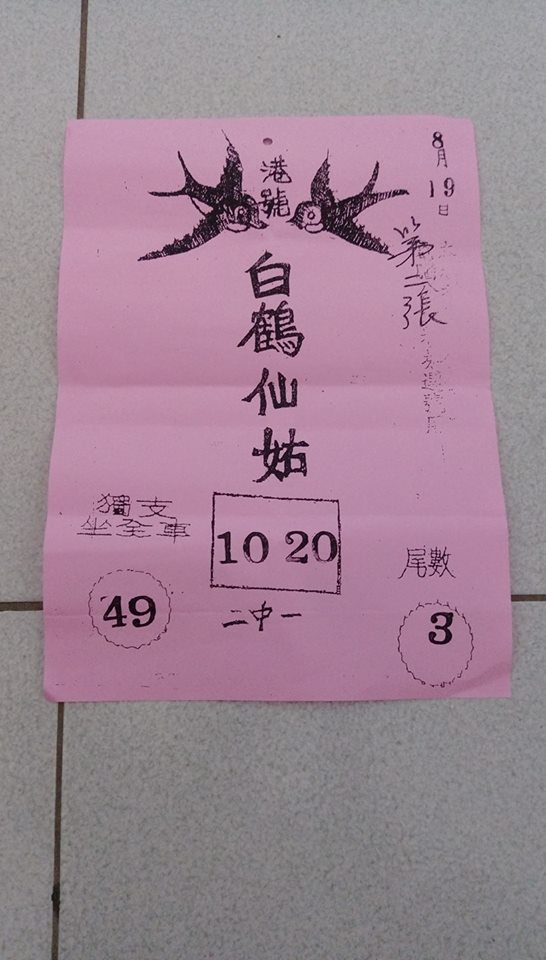 港號
8月19日
第二張
白鶴仙姑
獨支
坐全車
10 20
尾數
49
二中一
3